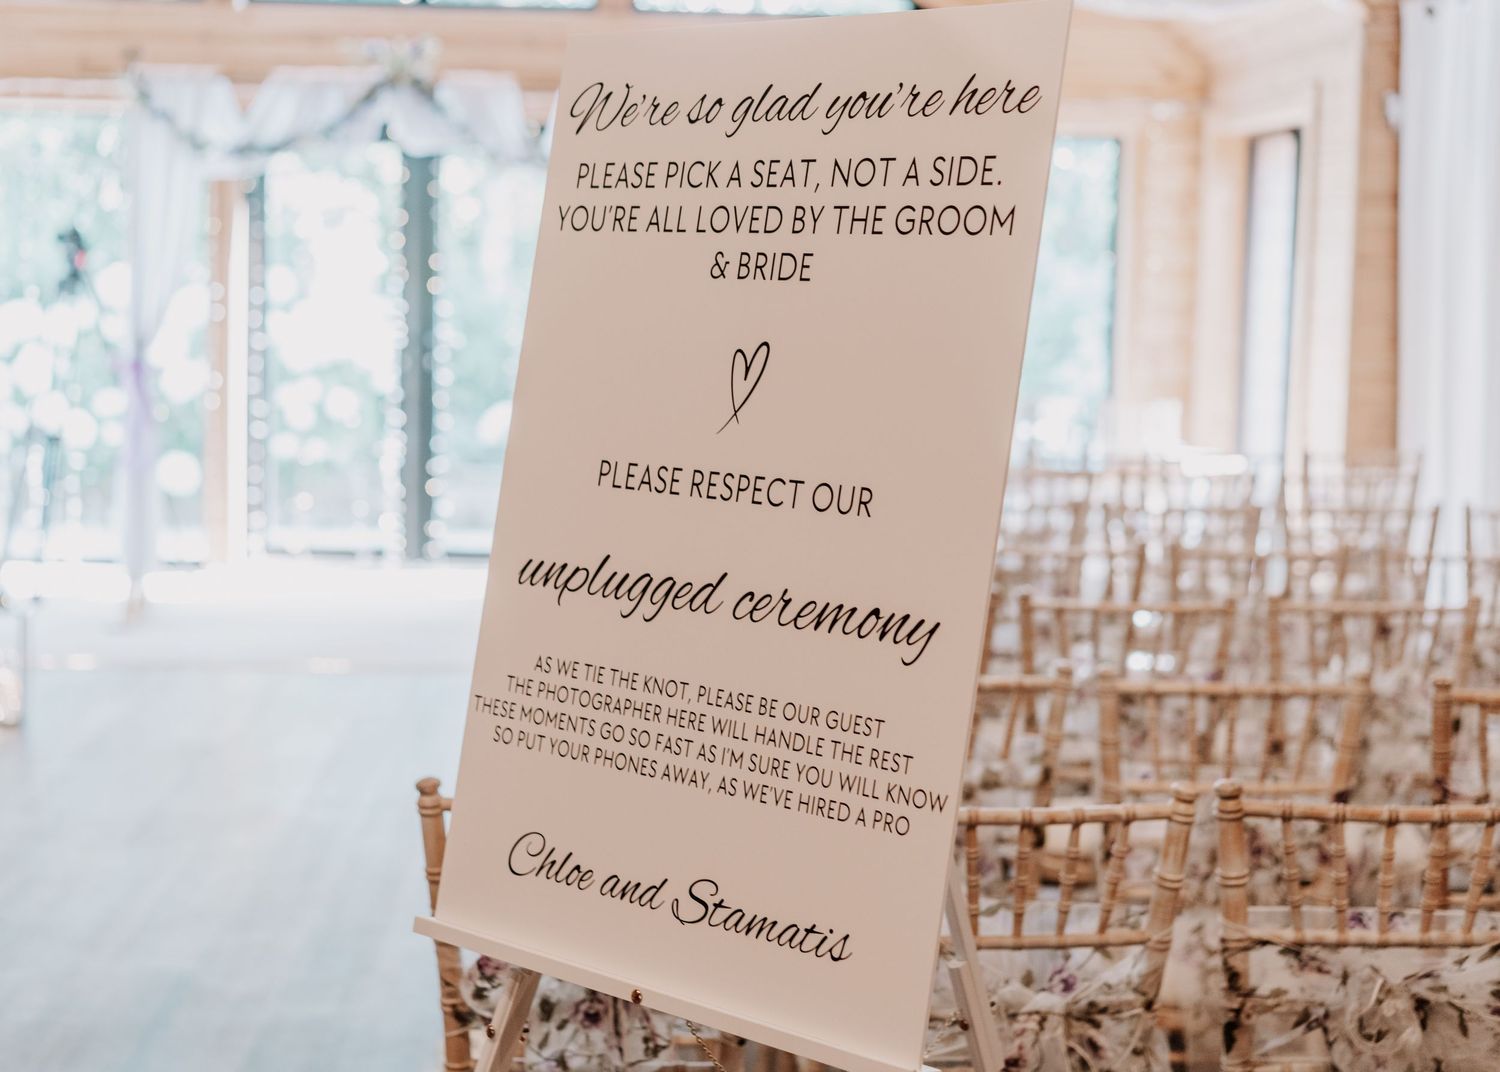 We're so glad you're here
PLEASE PICK A SEAT, NOT A SIDE.
YOU'RE ALL LOVED BY THE GROOM
& BRIDE
PLEASE RESPECT OUR
unplugged ceremony
AS WE TIE THE KNOT, PLEASE BE OUR GUEST
THE PHOTOGRAPHER HERE WILL HANDLE THE REST
THESE MOMENTS GO SO FAST AS I'M SURE YOU WILL KNOW
SO PUT YOUR PHONES AWAY, AS WE'VE HIRED A PRO
Chloe and Stamatis